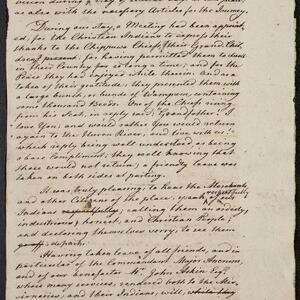 during a day of
as also with the necessary Articles for the Journey.
During our stay, a Meeting had been appoint-
ed, for the Christian Indians to express their
thanks to the Chippuwa Chiefs (their Grand Chil-
dren) present; for having permitted them to reside
in their Country for so long a time; and for the
Peace they had enjoyed while therein. And as a
token of their gratitude; they presented them with
a large bunch, or bunds of Wampum, containing
some thousand Beeds. One of the Chiefs rising
from his seat, in reply said: "Grandfather! I
love You; and would rather You would return
again to the Huron River, and live with us!"
which reply being well understood as being
a bare Compliment; they well knowing that we
would not return; a friendly leave was
taken on both sides at parting.
It was truly pleasing to hear the Merchants
and other Citizens of the place, speak of our
Indians respectfully; calling them an orderly,
industrious, honest, and Christian People;
and declaring themselves sorry, to see them
depart.
Having taken leave of all friends, and in
particular of the Commandant Major Ancrum,
and of our benefactor Mr. John Askin Esqr.
whose many services, rendered both to the Mis-
sionaries; and their Indians, will,